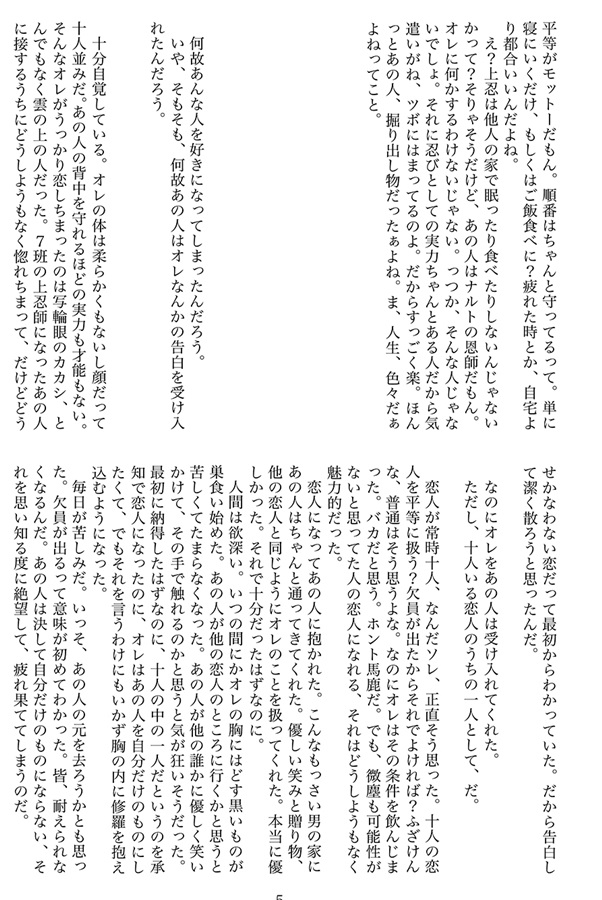 平等がモットーだもん。順番はちゃんと守ってるって。単に
寝にいくだけ、もしくはご飯食べに？疲れた時とか、自宅よ
り都合いいんだよね。
え？上忍は他人の家で眠ったり食べたりしないんじゃない
かって？そりゃそうだけど、あの人はナルトの恩師だもん。
オレに何かするわけないじゃない。っつか、そんな人じゃな
いでしょ。それに忍びとしての実力ちゃんとある人だから気
遣いがね、ツボにはまってるのよ。だからすっごく楽。ほん
っとあの人、掘り出し物だったぁよね。ま、人生、色々だぁ
よねってこと。
何故あんな人を好きになってしまったんだろう。
いや、そもそも、何故あの人はオレなんかの告白を受け入
れたんだろう。
十分自覚している。オレの体は柔らかくもないし顔だって
十人並みだ。あの人の背中を守れるほどの実力も才能もない。
そんなオレがうっかり恋しちまったのは写輪眼のカカシ、と
んでもなく雲の上の人だった。７班の上忍師になったあの人
に接するうちにどうしようもなく惚れちまって、だけどどう
せかなわない恋だって最初からわかっていた。だから告白し
て潔く散ろうと思ったんだ。
なのにオレをあの人は受け入れてくれた。
ただし、十人いる恋人のうちの一人として、だ。
恋人が常時十人、なんだソレ、正直そう思った。十人の恋
人を平等に扱う？欠員が出たからそれでよければ？ふざけん
な、普通はそう思うよな。なのにオレはその条件を飲んじま
った。バカだと思う。ホント馬鹿だ。でも、微塵も可能性が
ないと思ってた人の恋人になれる、それはどうしようもなく
魅力的だった。
恋人になってあの人に抱かれた。こんなもっさい男の家に
あの人はちゃんと通ってきてくれた。優しい笑みと贈り物、
他の恋人と同じようにオレのことを扱ってくれた。本当に優
しかった。それで十分だったはずなのに。
人間は欲深い。いつの間にかオレの胸にはどす黒いものが
巣食い始めた。あの人が他の恋人のところに行くかと思うと
苦しくてたまらなくなった。あの人が他の誰かに優しく笑い
かけて、その手で触れるのかと思うと気が狂いそうだった。
最初に納得したはずなのに、十人の中の一人だというのを承
知で恋人になったのに、オレはあの人を自分だけのものにし
たくて、でもそれを言うわけにもいかず胸の内に修羅を抱え
込むようになった。
毎日が苦しみだ。いっそ、あの人の元を去ろうかとも思っ
た。欠員が出るって意味が初めてわかった。皆、耐えられな
くなるんだ。あの人は決して自分だけのものにならない、そ
れを思い知る度に絶望して、疲れ果ててしまうのだ。